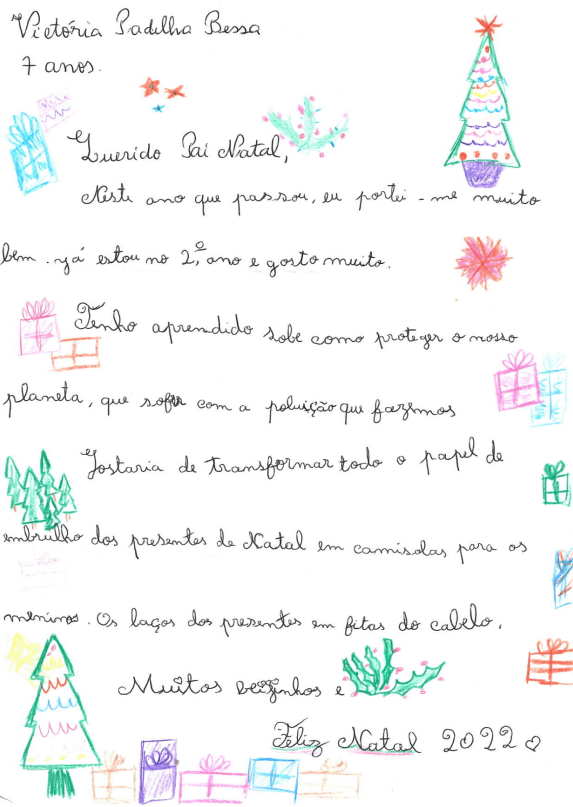 Victória Padilha Bessa
7 anos.
Querido Pai Natal,
Neste ano que passou, eu portei-me muito
bem. já estou no 2.º ano e gosto muito.
Tenho aprendido sobe como proteger o nosso
planeta, que sofre com a poluição que fazemos
Gostaria de transformar todo o papel de
embrulho dos presentes de Natal em camisolas para os
meninos. Os laços dos presentes em fitas do cabelo.
Muitos beijinhos e
Feliz Natal 2022